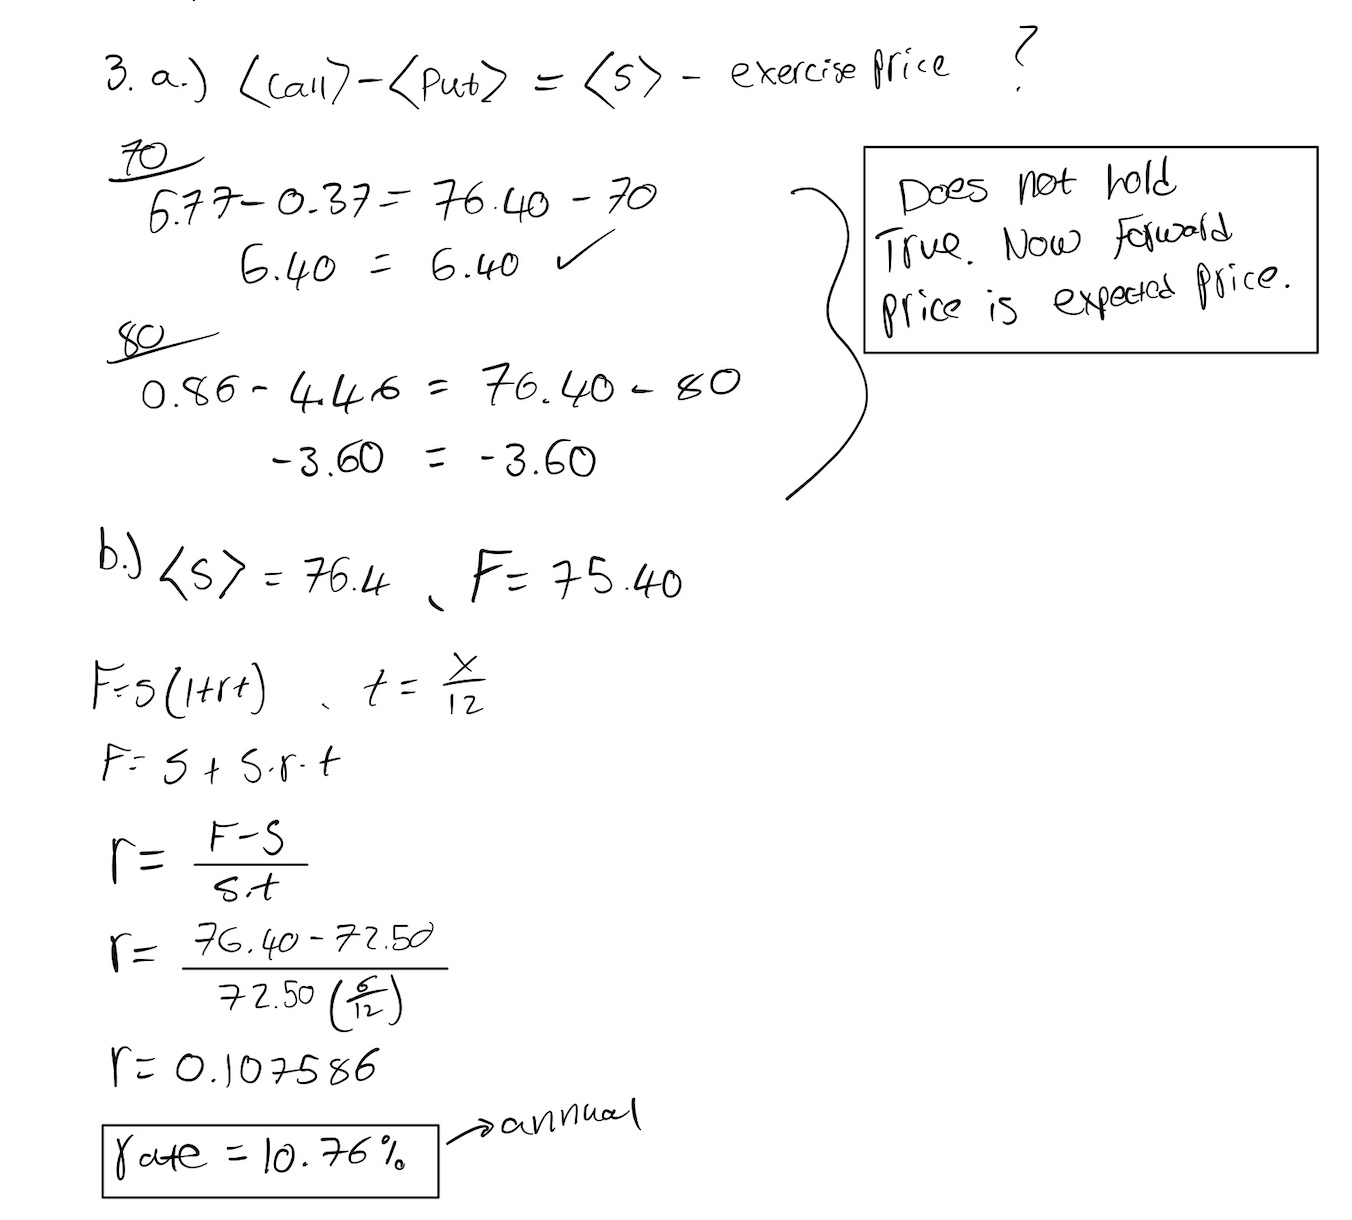 3. a.) <Call> - <Put> = <S> - exercise price ?
70
6.77 - 0.37 = 76.40 - 70
6.40 = 6.40 ✓
80
0.86 - 4.46 = 76.40 - 80
-3.60 = -3.60
Does not hold
True. Now Forward
price is expected price.
b.) <S> = 76.4 , F = 75.40
F=S(1+rt) , t = x/12
F = S + S.r.t
r = F-S / S.t
r = 76.40 - 72.50 / 72.50 (6/12)
r = 0.107586
rate = 10.76% → annual